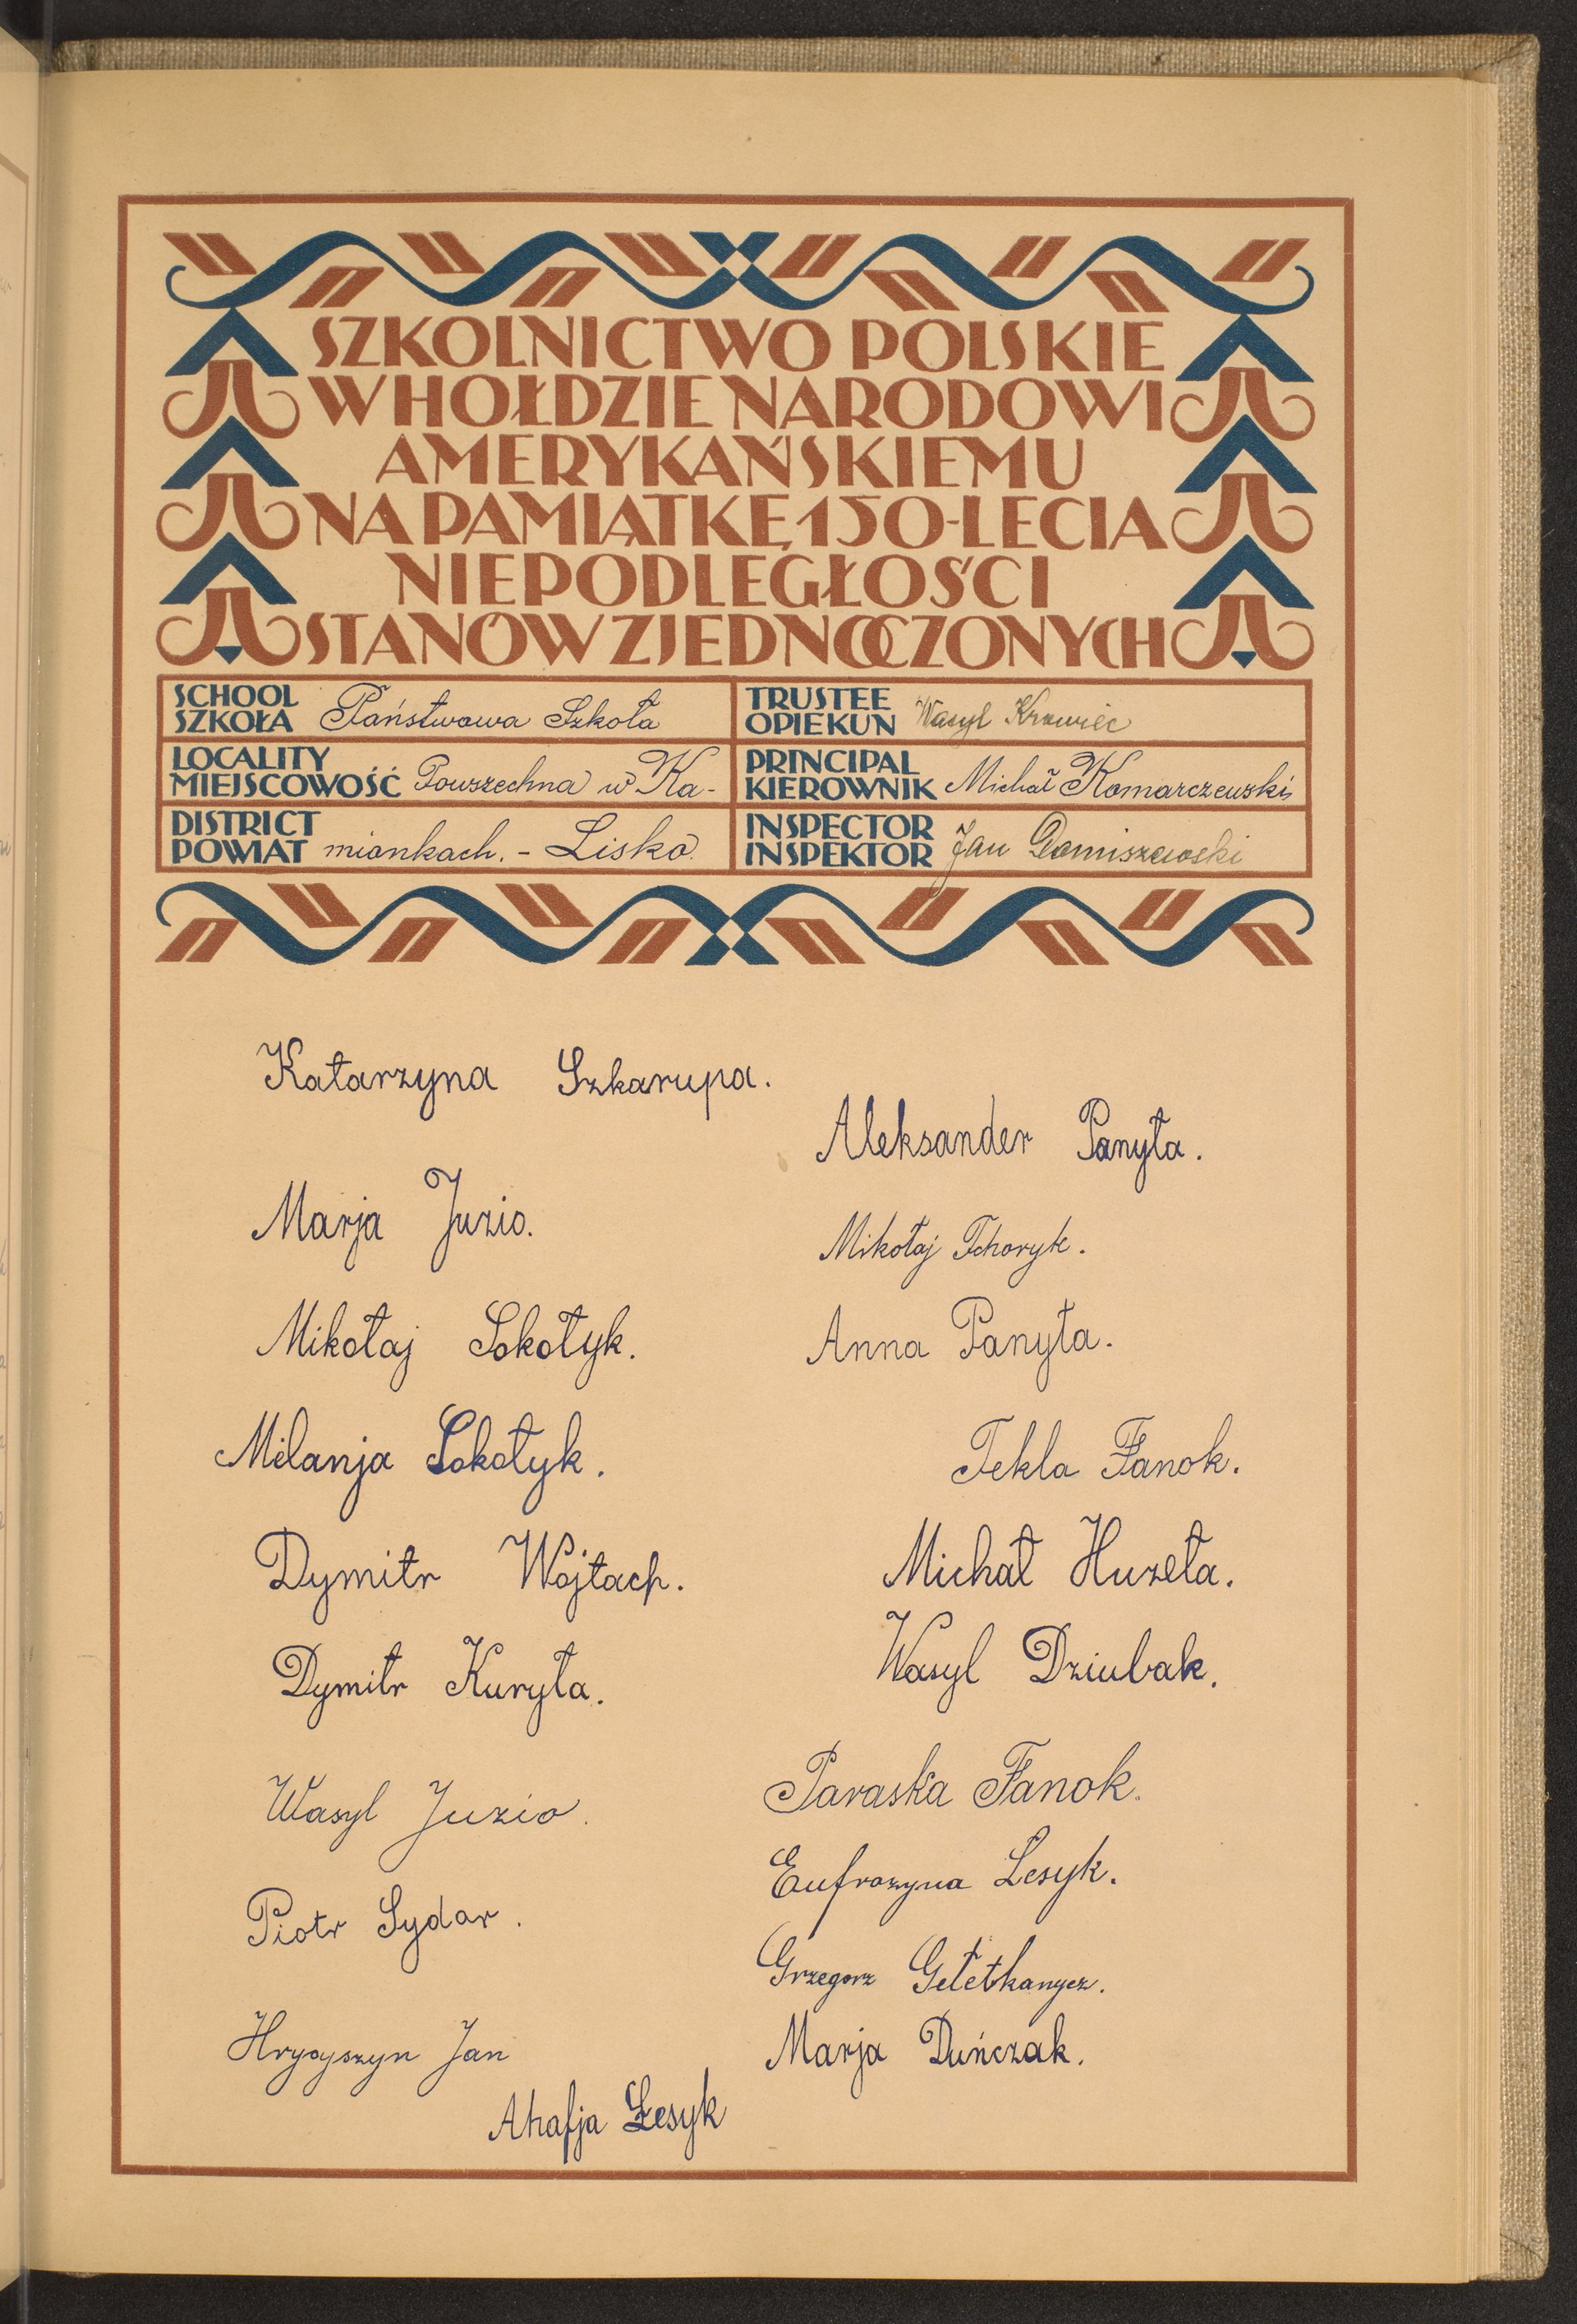 SZKOLNICTWO POLSKIE
W HOŁDZIE NARODOWI
AMERYKAŃSKIEMU
NA PAMIĄTKĘ 150-LECIA
NIEPODLEGŁOŚCI
STANÓW ZJEDNOCZONYCH
SCHOOL
SZKOŁA Państwowa Szkoła
LOCALITY
MIEJSCOWOŚĆ Powszechna w Ka-
DISTRICT
POWIAT miankach. - Lisko.
TRUSTEE
OPIEKUN Wasyl Krawiec
PRINCIPAL
KIEROWNIK Michał Komarczewski
INSPECTOR
INSPEKTOR Jan Domiszewski
Katarzyna Szkarupa.
Marja Juzio.
Mikołaj Sokołyk.
Milanja Sokołyk.
Dymitr Wojtach.
Dymitr Kuryła.
Wasyl Juzio.
Piotr Sydar.
Hrycyszyn Jan
Ahafja Łesyk
Aleksander Panyła.
Mikołaj Tchoryk.
Anna Panyła.
Tekla Fanok.
Michał Huzeła.
Wasyl Dziubak.
Paraska Fanok.
Eufrozyna Lesyk.
Grzegorz Gełetkanycz.
Marja Duńczak.